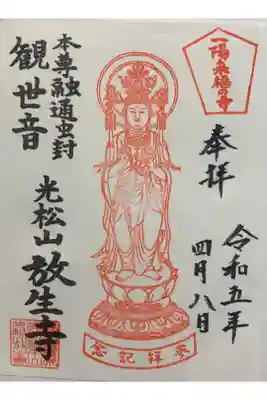 一陽来福の寺
奉拝
令和五年
四月八日
参拝記念
本尊融通虫封
観世音
光松山 放生寺